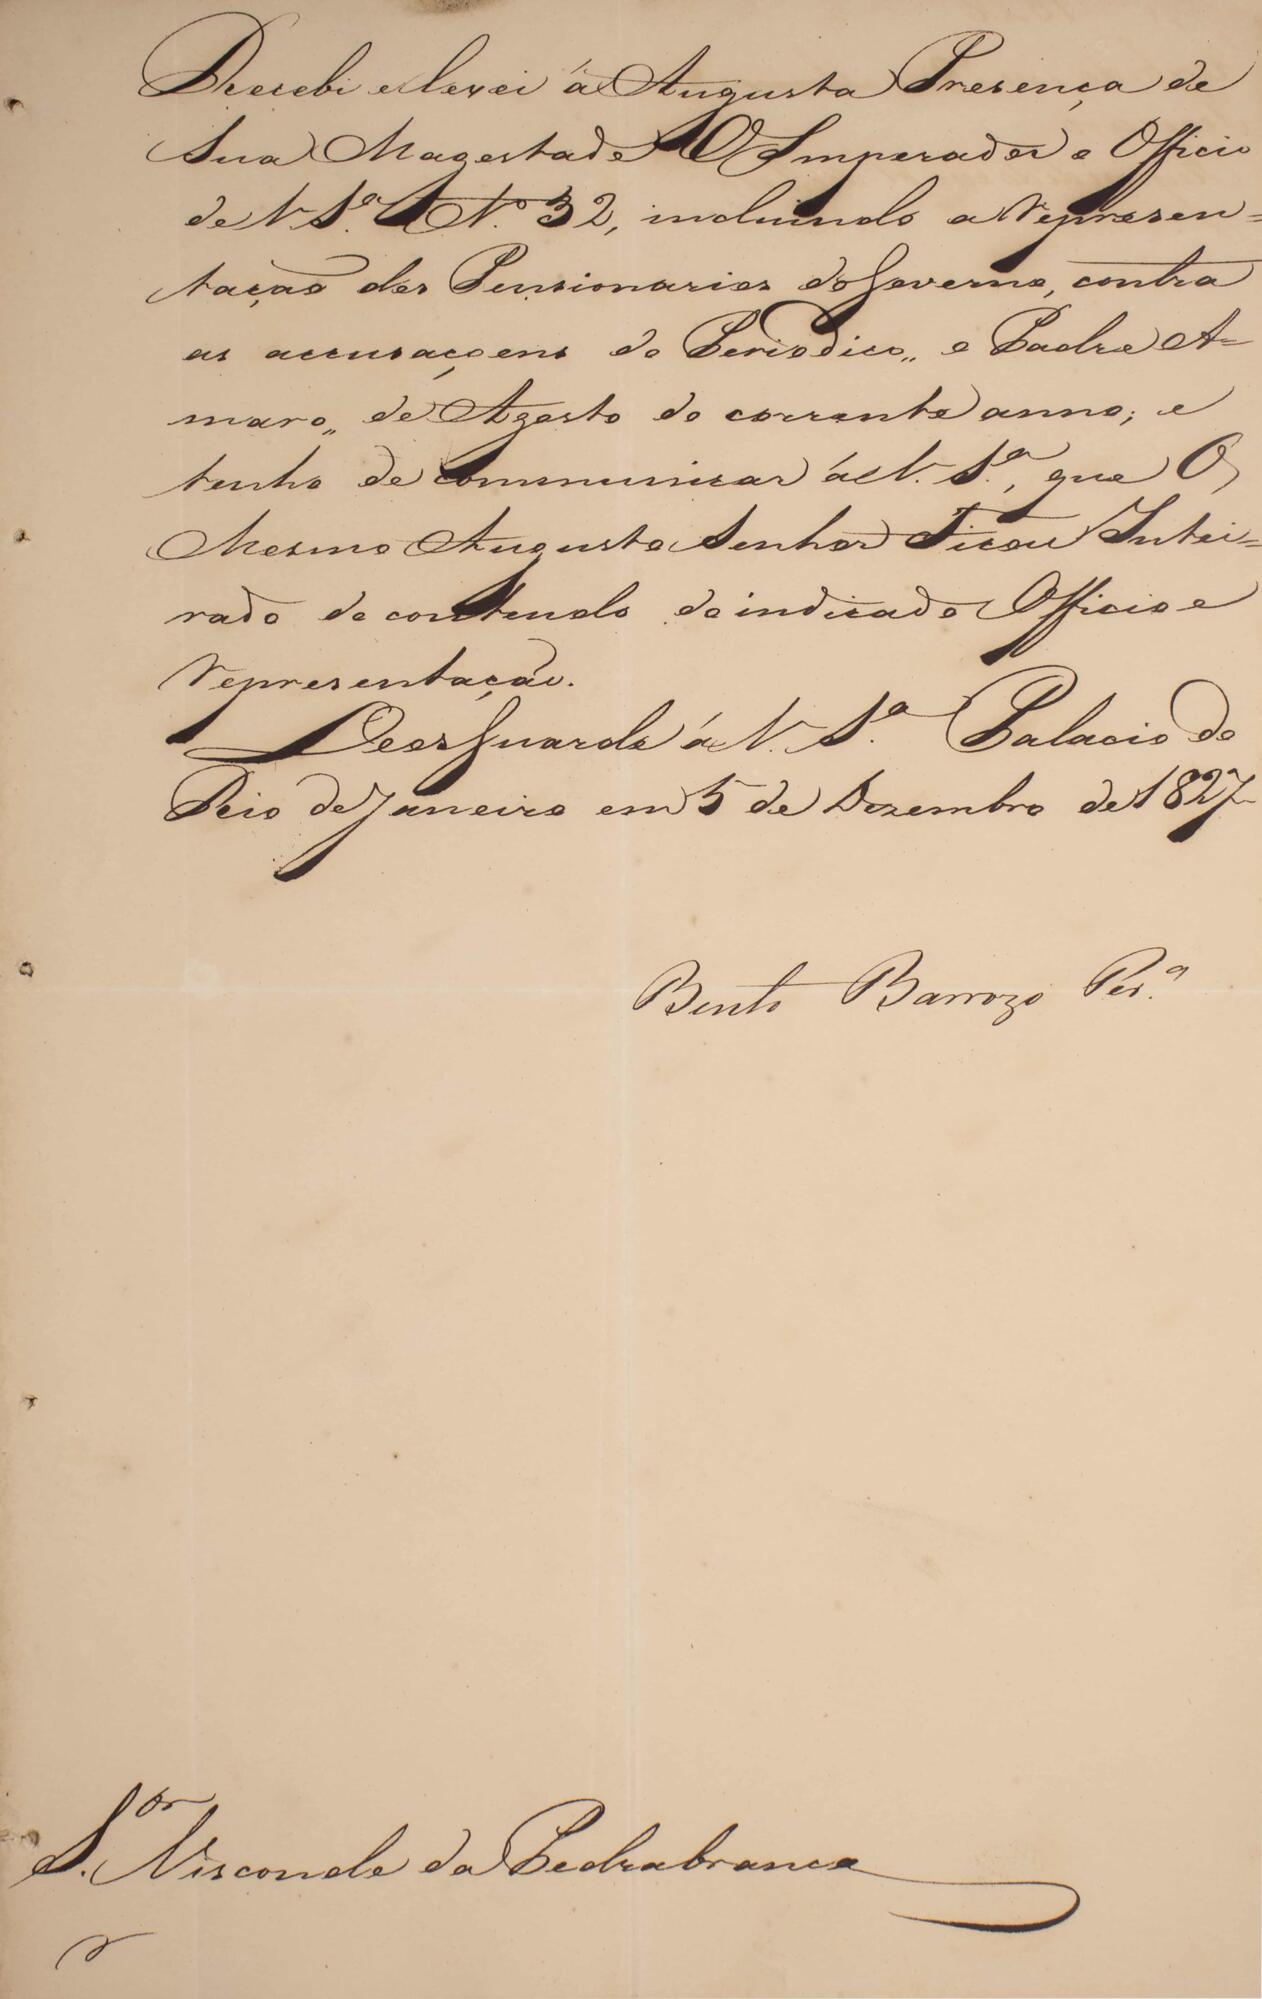 Recebi e levei á Augusta Presença de
Sua Magestade O Imperador o Officio
de V. S.ª N.º 32, incluindo a represen=
tação dos Pensionarios do Governo, contra
as accusaçoens do Periodico „ o Padre A=
maro „ de Agosto do corrente anno; e
tenho de communicar á V. S.ª, que O
Mesmo Augusto Senhor Ficou Intei=
rado do contendo do indicado Officio e
representação.
Deos Guarde á V. S.ª Palacio do
Rio de Janeiro em 5 de Dezembro de 1827
Bento Barrozo Per.ª
S.or Visconde da Pedrabranca